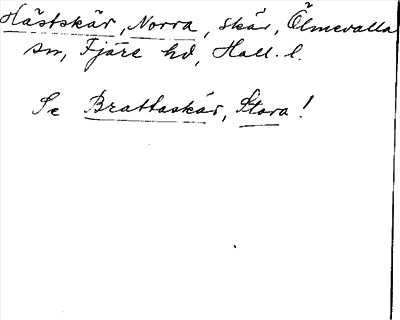 Hästskär, Norra, skär, Ölmevalla
sn, Fjäre hd, Hall. l.
Se Brattaskär, Stora!